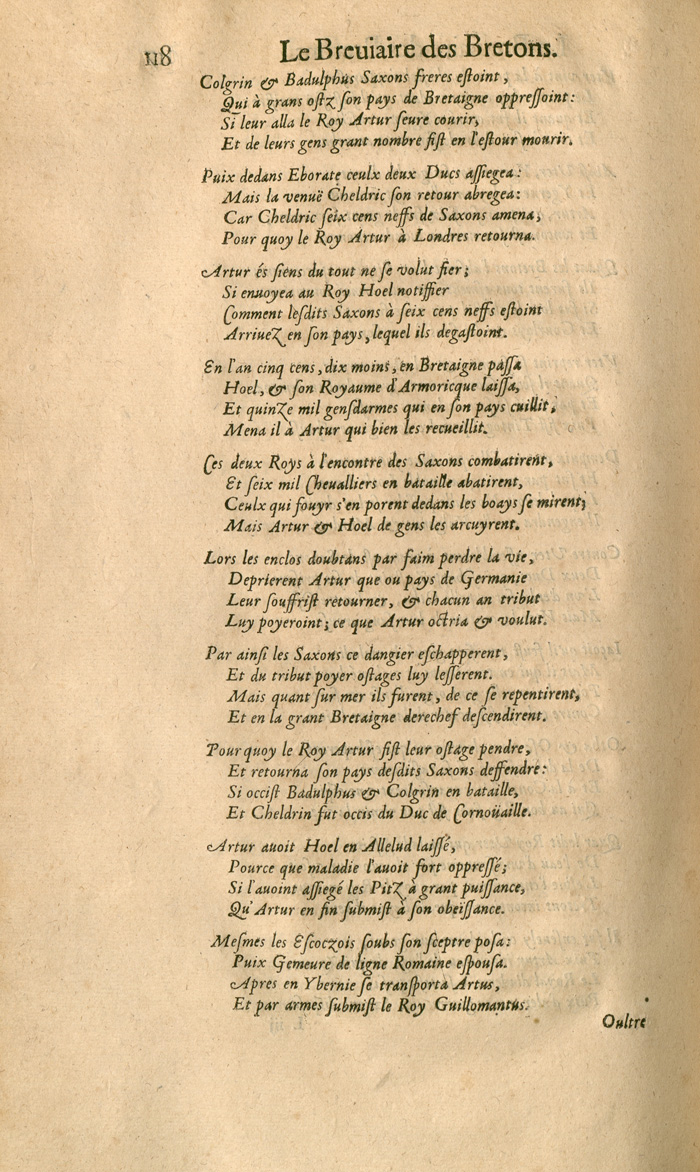 118 Le Breuiaire des Bretons.
Colgrin & Badulphus Saxons freres eſtoint,
Qui à grans oſtz ſon pays de Bretaigne oppreſſoint:
Si leur alla le Roy Artur ſeure courir,
Et de leurs gens grant nombre fiſt en l'eſtour mourir.
Puix dedans Eborate ceulx deux Ducs aſſiegea:
Mais la venuë Cheldric ſon retour abregea:
Car Cheldric ſeix cens neffs de Saxons amena,
Pour quoy le Roy Artur à Londres retourna.
Artur és ſiens du tout ne ſe volut fier;
Si enuoyea au Roy Hoel notiffier
Comment leſdits Saxons à ſeix cens neffs eſtoint
Arriuez en ſon pays, lequel ils degaſtoint.
En l'an cinq cens, dix moins, en Bretaigne paſſa
Hoel, & ſon Royaume d'Armoricque laiſſa,
Et quinze mil genſdarmes qui en ſon pays cuillit,
Mena il à Artur qui bien les recueillit.
Ces deux Roys à l'encontre des Saxons combatirent,
Et ſeix mil Cheualliers en bataille abatirent,
Ceulx qui fouyr s'en porent dedans les boays ſe mirent;
Mais Artur & Hoel de gens les arcuyrent.
Lors les enclos doubtans par faim perdre la vie,
Deprierent Artur que ou pays de Germanie
Leur ſouffriſt retourner, & chacun an tribut
Luy poyeroint; ce que Artur octria & voulut.
Par ainſi les Saxons ce dangier eſchapperent,
Et du tribut poyer oſtages luy leſſerent.
Mais quant ſur mer ils furent, de ce ſe repentirent,
Et en la grant Bretaigne derechef deſcendirent.
Pour quoy le Roy Artur fiſt leur oſtage pendre,
Et retourna ſon pays deſdits Saxons deffendre:
Si occiſt Badulphus & Colgrin en bataille,
Et Cheldrin fut occis du Duc de Cornoüaille.
Artur auoit Hoel en Allelud laiſſé,
Pource que maladie l'auoit fort oppreſſé;
Si l'auoint aſſiegé les Pitz à grant puiſſance,
Qu'Artur en fin ſubmiſt à ſon obeïſſance.
Meſmes les Eſcoczois ſoubs ſon ſceptre poſa:
Puix Gemeure de ligne Romaine eſpouſa.
Apres en Ybernie ſe tranſporta Artus,
Et par armes ſubmiſt le Roy Guillomantus.
Oultre